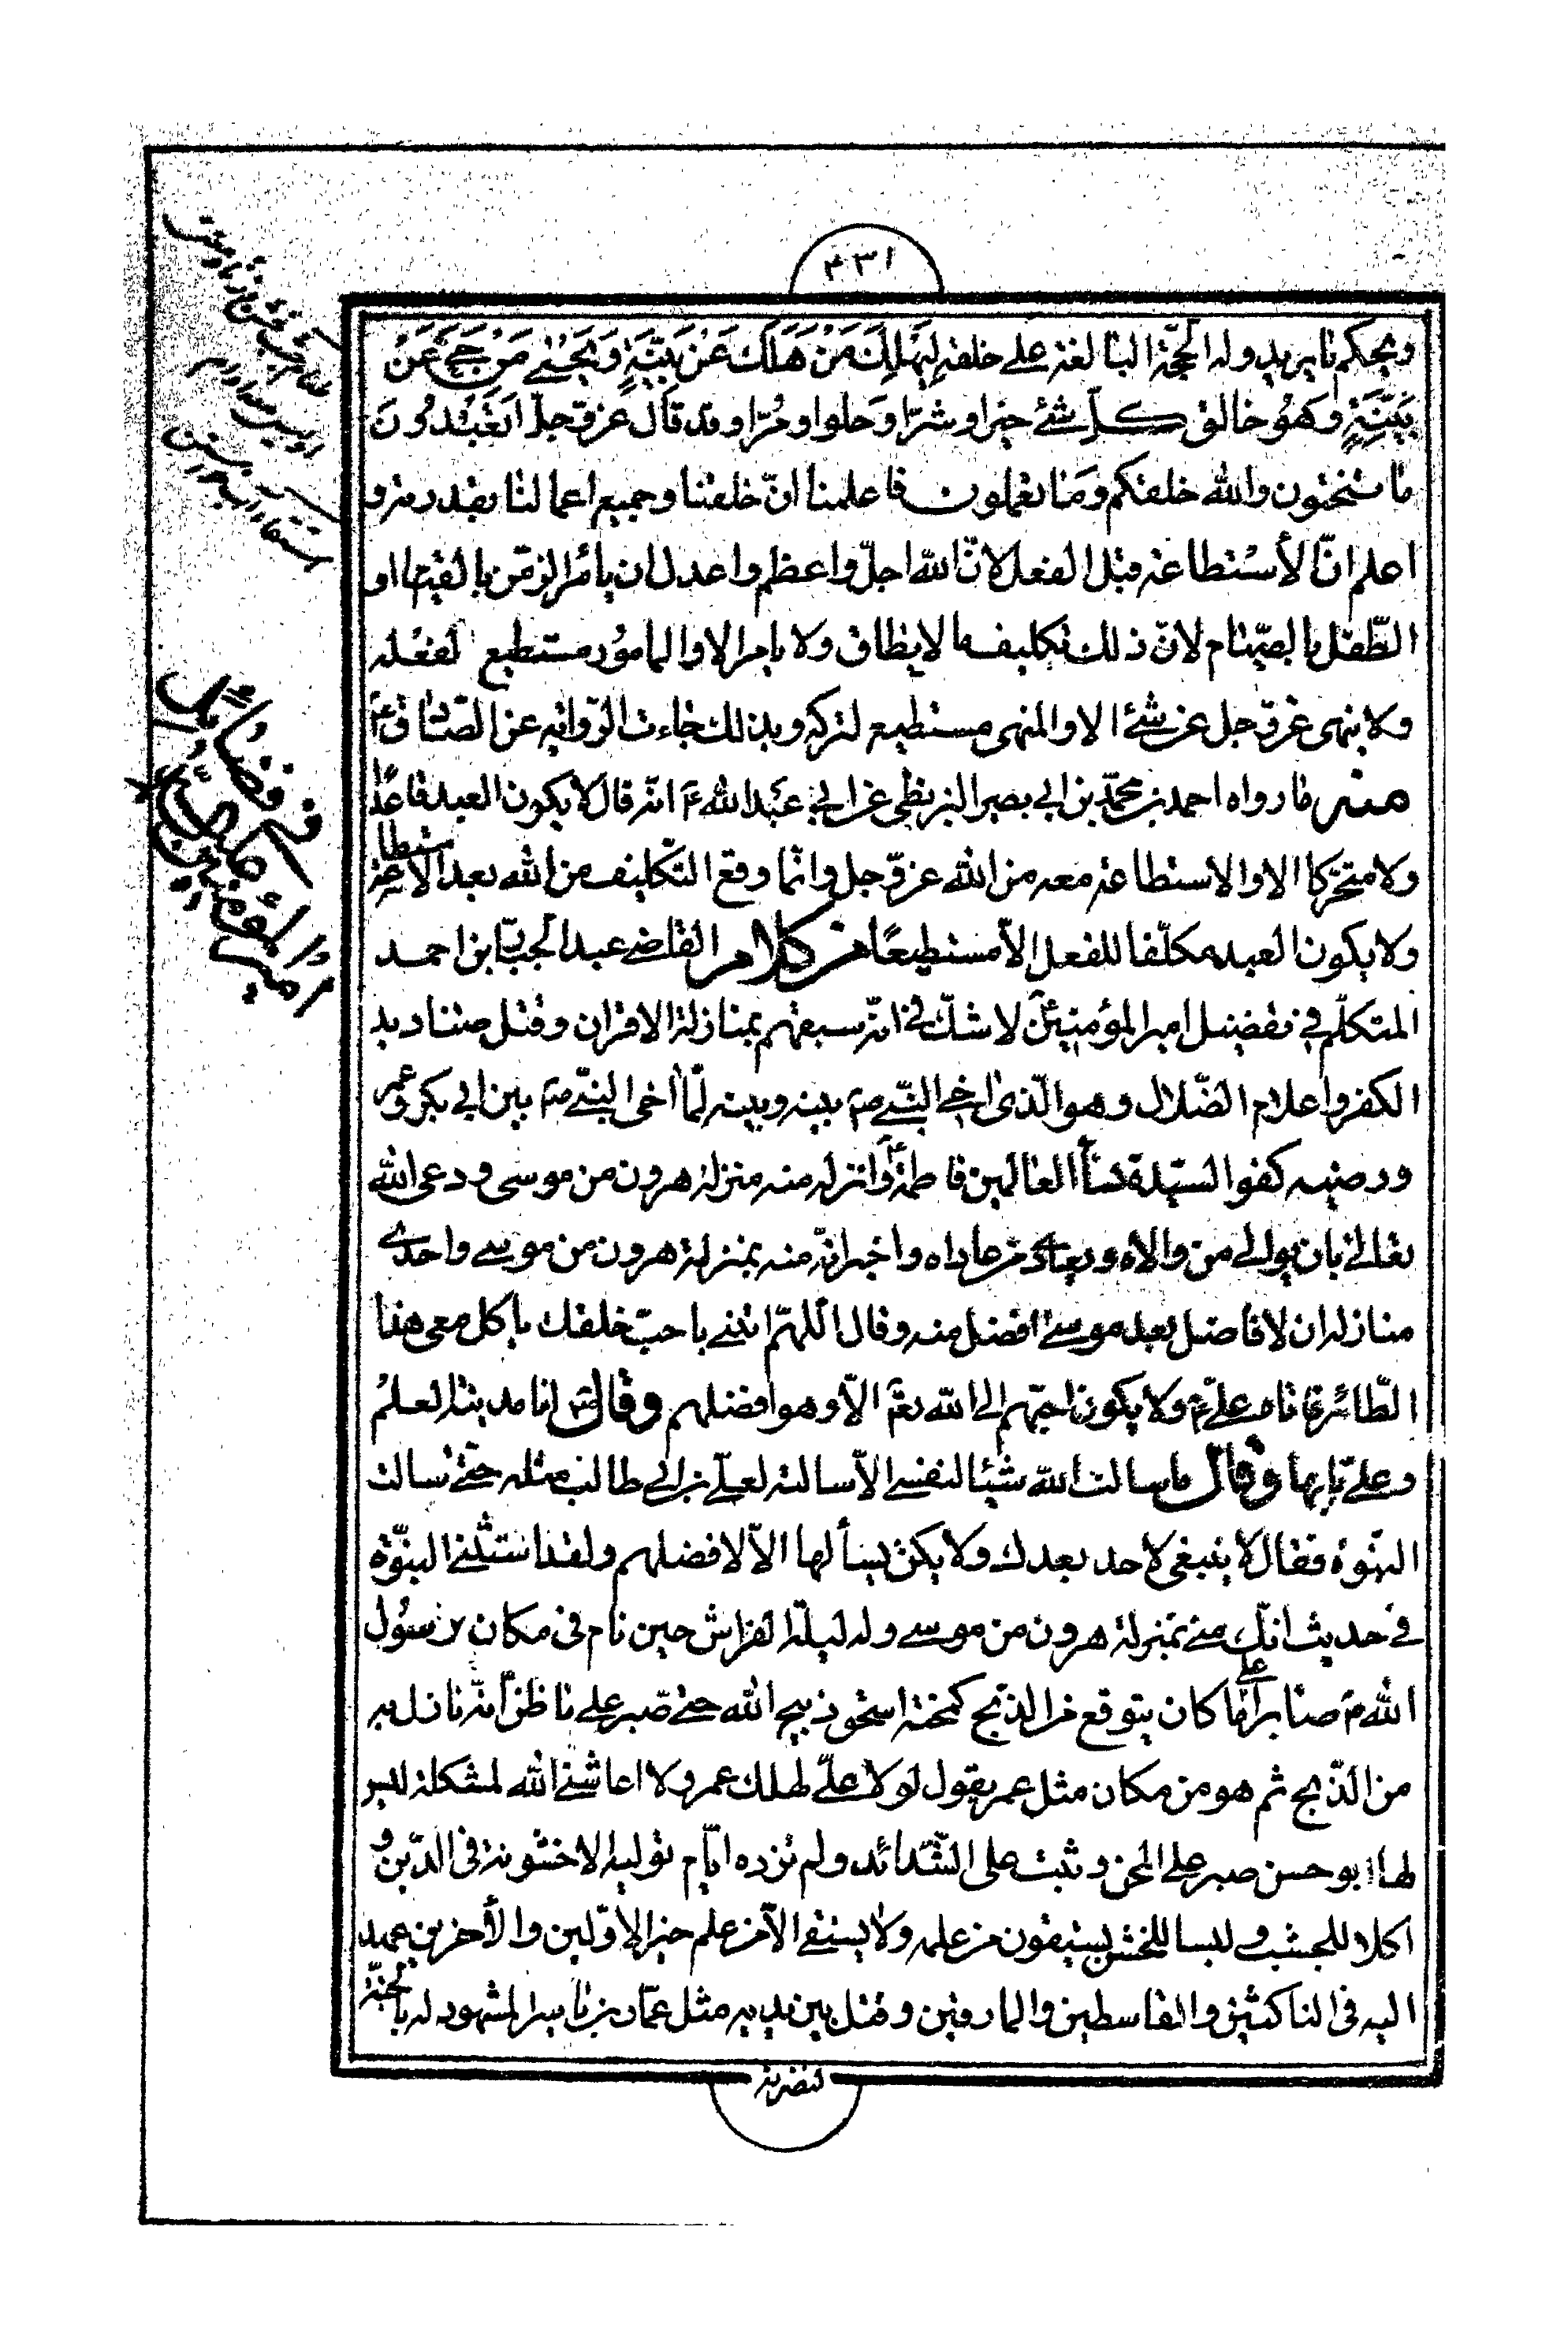 ٤٣١
ويحكم ما يريد وله الحجّة البالغة على خلقه لِيَهْلِكَ مَنْ هَلَكَ عَنْ بَيِّنَةٍ وَيَحْيٰى مَنْ حَيَّ عَنْ
بَيِّنَةٍ وهُو خالق كلّ شئ خيرا وشرّا وحلوا ومُرّا وقد قال عزّ وجلّ اتَعْبُدُونَ
ما تنحتون والله خلقكم وما تعملون فاعلمنا انّ خلقنا وجميع اعمالنا بقدرته و
اعلم انّ الأستطاعة قبل الفعل لانّ الله اجلّ واعظم واعدل ان يامر الزمن بالقيام او
الطّفل بالصّيام لانّ ذلك تكليف ما لا يطاق ولا يامر الا والمامور مستطيع لفعله
ولا ينهى عزّ وجل عن شئ الا والمنهى مستطيع لتركه وبذلك جاءت الرّواية عن الصّادق ع
منه ما رواه احمد بن محمّد بن ابي بصير البزنطى عن ابي عبد الله ع انّه قال لا يكون العبد فاعلا
ولا متحركا الا والاستطاعة معه من الله عزّ وجل وانّما وقع التكليف من الله بعد الاستطاعة
ولا يكون العبد مكلّفا للفعل الّا مستطيعًا من كلام القاضى عبد الجبّار بن احمد
المتكلّم في تفضيل امير المؤمنين ع لا شكّ في انّه سبقهم بمنازلة الاقران وقتل صناديد
الكفر واعلام الضّلال وهو الّذى اخى النبّي ص بينه وبينه لمّا اخى النبّي ص بين ابي بكر وعمر
ورضيه كفوا لسيّدة نسآء العالمين فاطمة ع وانزله منه منزلة هرون من موسى ودعى الله
تعالى بان يوالي من والاه ويعادى من عاداه واخبر انّه منه بمنزلة هرون من موسى واحدى
منازله ان لا فاضل بعد موسى افضل منه وقال اللّهمّ ائتني باحبّ خلقك ياكل معى هذا
الطّائر فاتاه علي ع ولا يكون احبّهم الى الله تعم الّا وهو افضلهم وقال ص انا مدينة العلم
وعلىّ بابها وقال ما سالت الله شيئا لنفسى الّا سالته لعلى بن ابي طالب مثله حتّى سالت
النبّوة فقال لا ينبغى لاحد بعدك ولا يكن يسأ لها الّا لافضلهم ولقد استثنى النبّوة
في حديث انّك منى بمنزلة هرون من موسى وله ليلة الفراش حين نام فى مكان رسول
الله ص صابرا على ما كان يتوقع من الذبح كمحنة اسحق ذبيح الله حتى صبر على ما ظن انّه نازل به
من الذّبح ثم هو من مكان مثل عمر يقول لولا علىّ لهلك عمر ولا اعاشني الله لمشكلة ليس
لها ابو حسن صبر على المحن وثبت على الشّدائد ولم تزده ايّام توليه الا خشونة فى الدّين و
اكلا للجشب ولبسا للخشن يستقون من علمه ولا يستقى الّا من علم خير الاوّلين والأخرين عهد
اليه فى الناكثين والقاسطين والمارقين وقتل بين يديه مثل عمّار بن ياسر المشهود له بالجنّة
لنصرته
در فضايل
امير المؤمنين